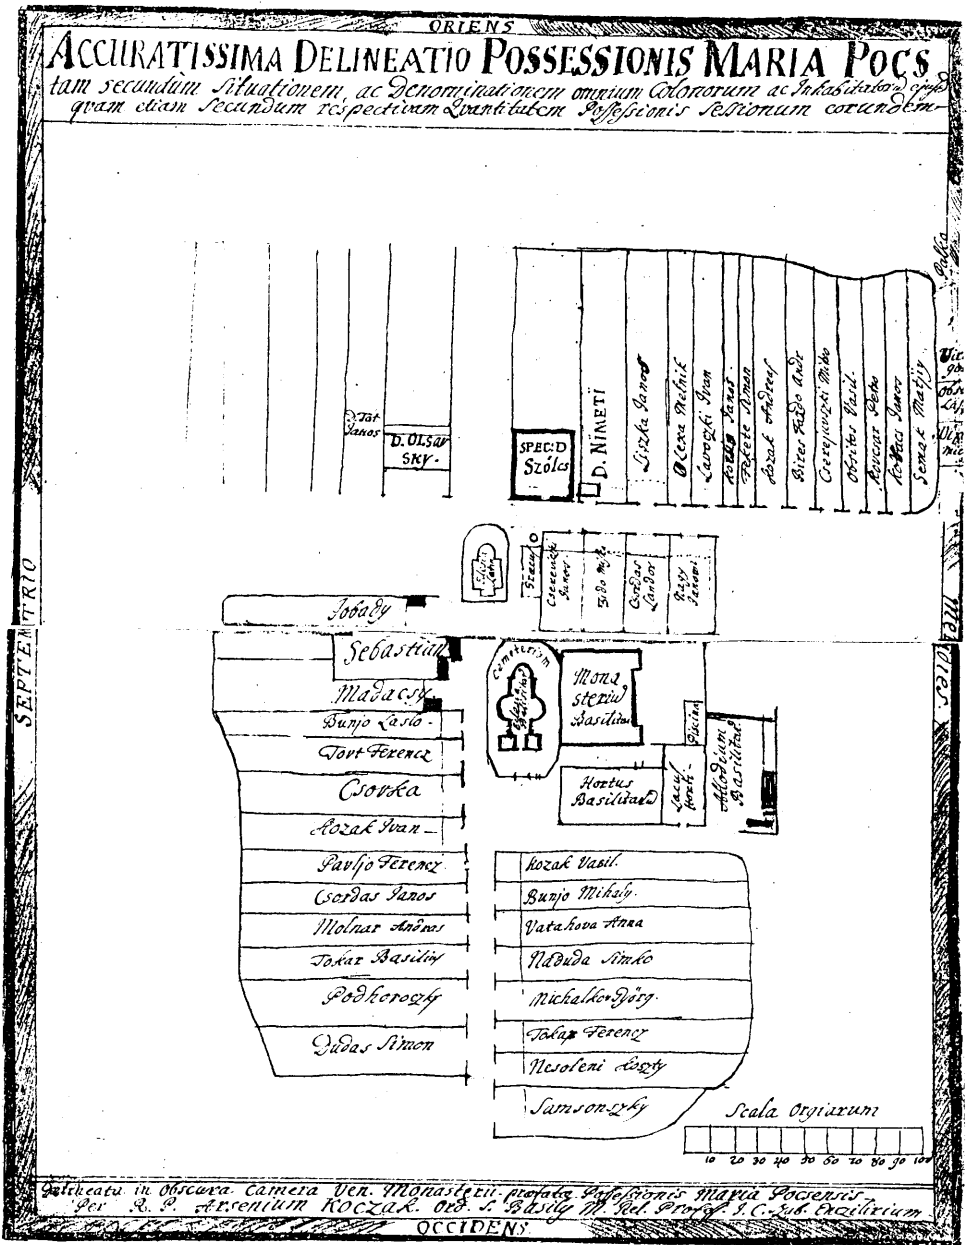 ORIENS
ACCURATISSIMA DELINEATIO POSSESSIONIS MARIA POCS
tam secundum Situationem, ac Denominationem omnium Colonorum ac Inhabitatorū
qvam etiam Secundum respectivam Qvantitatem Possessionis Sessionum eorundem
Palko
D. Tat
Janos
D. OLSAV
SKY.
SPEC: D
Szőlcs
D. NIMETI
Liszka Janos
Olexa Melnik
Lavoczki Ivan
Janos
Fekete Simon
Kozak Andreas
Bires Fado Andr
Cserepovszki Misko
Obritos Vasil.
Kovcsar Petro
Kovacs Janos
Semak Matjij
SEPTEMTRIO
MERIDIES
Janos
Zido
Csordas
Sandor
Nagy
Jobady
Sebastian
Madacsy
Bunjo Laslo
Tovt Ferencz
Csovka
Kozak Ivan
Pavljo Ferencz
Csordas Janos
Molnar Andras
Tokar Basiliy
Podhoroczky
Dudas Simon
Cemeterium
Mona
steriū
Basilitar
Piscina
Allodium
Basilitar
Hortus
Basilitarū
Lacus
horti
Kozak Vasil.
Bunjo Mihaly.
Vatahova Anna
Naduda Simko
Michalko Györg.
Tokar Ferencz
Nesoleni Koszty
Samsonszky
Scala Orgiarum
10 20 30 40 50 60 70 80 90 100
Delineata in obscura camera Ven. Monasterii praefatae Possessionis Maria Pocsensis
Per R. P. Arsenium Koczak. Ord. S. Basilij M. Rel. Profess. J. C. Sub.
OCCIDENS